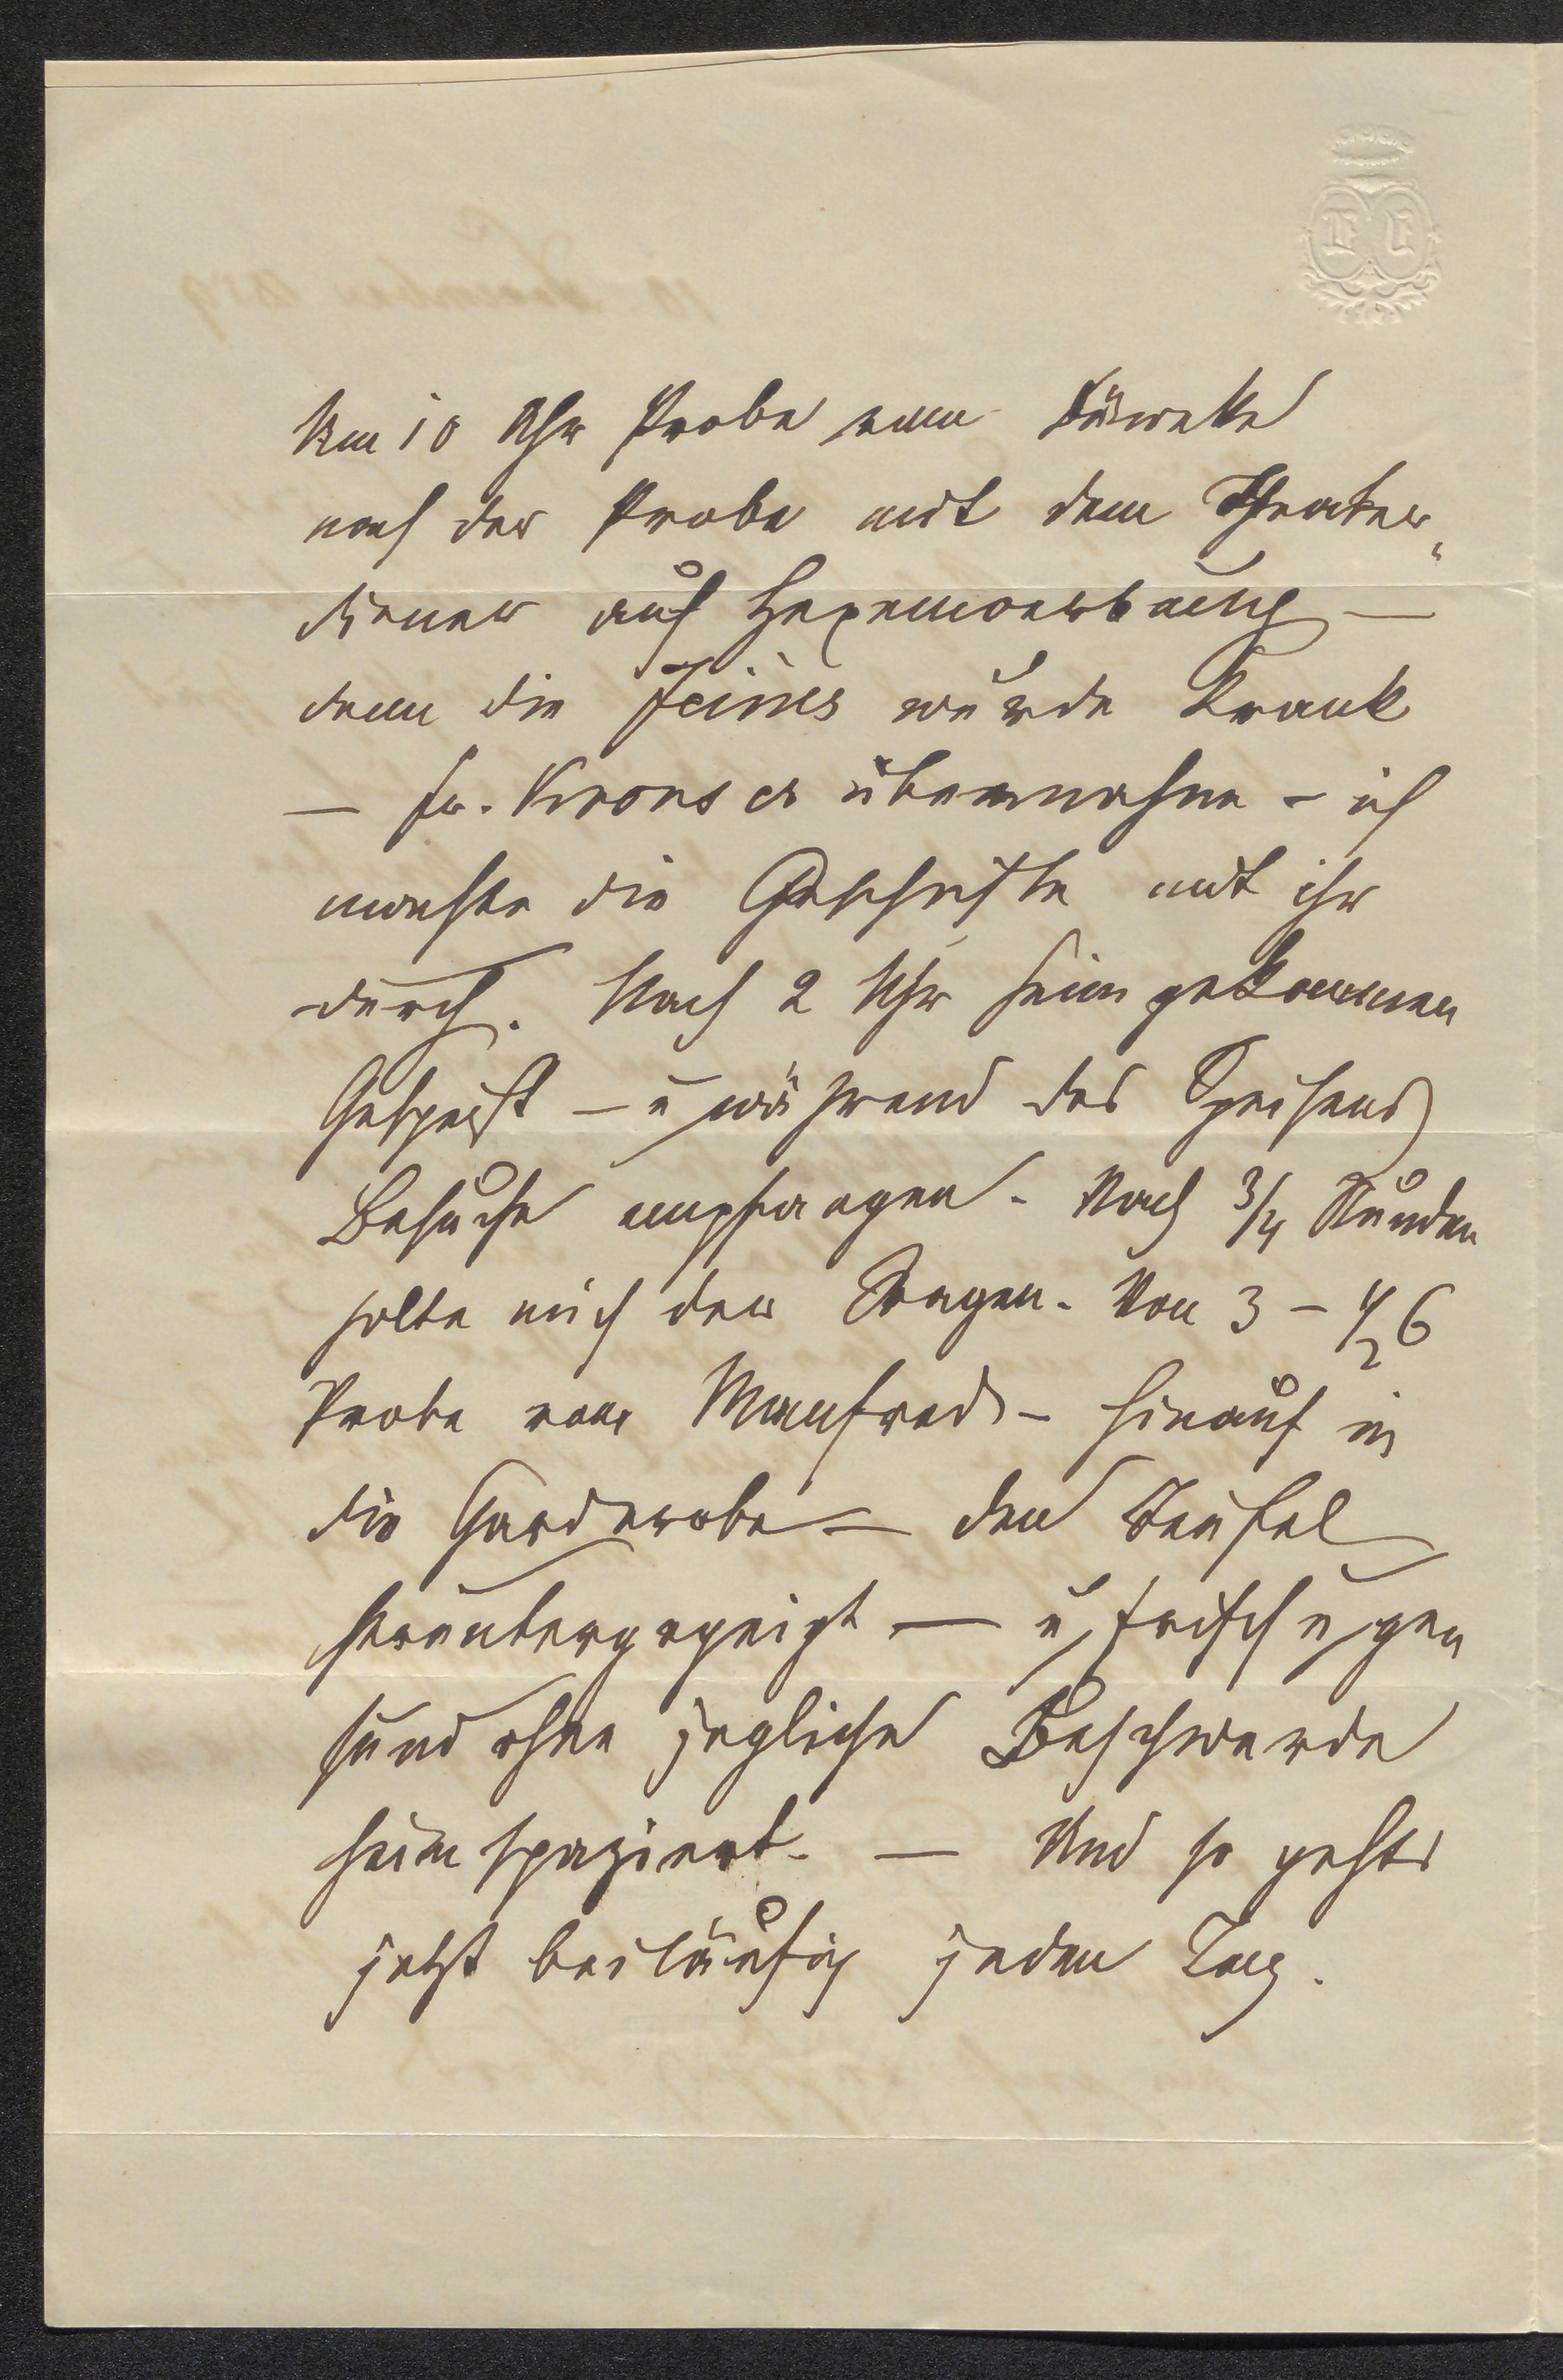 Um 10 Uhr Probe vom
nach der Probe mit dem Theater„
diener auf Hexenwerbung —
denn die Feines wurde krank
— Fr. Krones es übernahm – ich
machte die Geschichte mit ihr
durch. Nach 2 Uhr heim gekommen
Gespeist – u während des Speisens
Besuche empfangen. Nach 3/4 Stunden
holte mich der Wagen. Von 3 – 1/2 6
Probe von Manfred – hinauf in
die Garderobe – den Teufel
heruntergegeigt — u frisch u gen
sund ohne jegliche Beschwerde
heim spaziert. — Und so gehts
jetzt beiläufig jeden Tag.